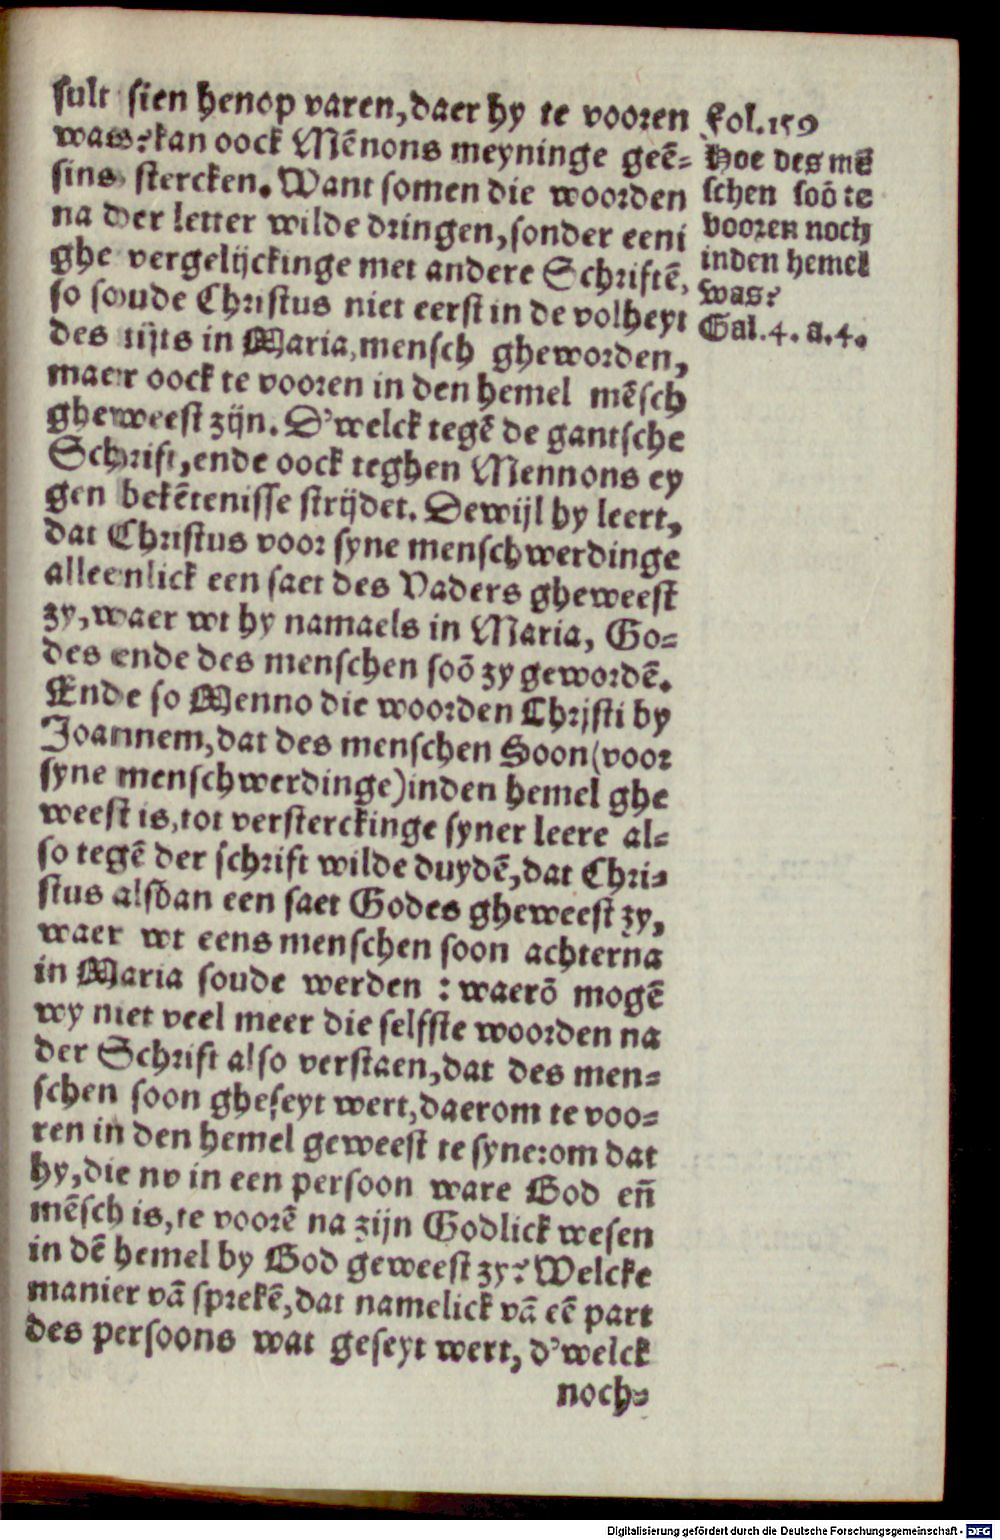 sult sien henop varen, daer hy te vooren
was? kan oock Mēnons meyninge geē-
sins stercken. Want somen die woorden
na der letter wilde dringen, sonder eeni
ghe vergelijckinge met andere Schriftē,
so soude Christus niet eerst in de volheyt
des tijts in Maria, mensch gheworden,
maer oock te vooren in den hemel mēsch
gheweest zijn. D'welck tegē de gantsche
Schrift, ende oock teghen Mennons ey
gen bekētenisse strijdet. Dewijl hy leert,
dat Christus voor syne menschwerdinge
alleenlick een saet des Vaders gheweest
zy, waer wt hy namaels in Maria, Go-
des ende des menschen soō zy gewordē.
Ende so Menno die woorden Christi by
Joannem, dat des menschen Soon (voor
syne menschwerdinge) inden hemel ghe
weest is, tot versterckinge syner leere al-
so tegē der schrift wilde duydē, dat Chri-
stus alsdan een saet Godes gheweest zy,
waer wt eens menschen soon achterna
in Maria soude werden : waerō mogē
wy niet veel meer die selffste woorden na
der Schrift also verstaen, dat des men-
schen soon gheseyt wert, daerom te voo-
ren in den hemel geweest te syne: om dat
hy, die nv in een persoon ware God eñ
mēsch is, te voorē na zijn Godlick wesen
in dē hemel by God geweest zy? Welcke
manier vā sprekē, dat namelick vā eē part
des persoons wat geseyt wert, d'welck
noch-
Fol. 159
Hoe des mē
schen soō te
vooren noch
inden hemel
was?
Gal. 4. a. 4.
Digitalisierung gefördert durch die Deutsche Forschungsgemeinschaft - DFG